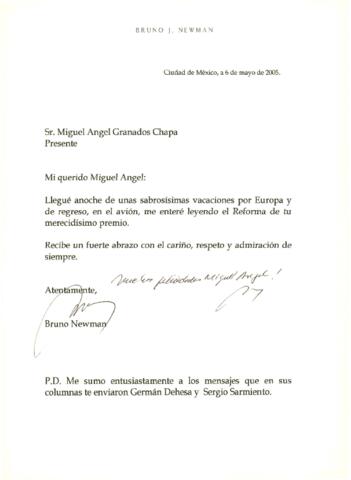 BRUNO J. NEWMAN
Ciudad de México, a 6 de mayo de 2005.
Sr. Miguel Angel Granados Chapa
Presente
Mi querido Miguel Angel:
Llegué anoche de unas sabrosísimas vacaciones por Europa y
de regreso, en el avión, me enteré leyendo el Reforma de tu
merecidísimo premio.
Recibe un fuerte abrazo con el cariño, respeto y admiración de
siempre.
felicidades Miguel Angel!
Atentamente,
Bruno Newman
P.D. Me sumo entusiastamente a los mensajes que en sus
columnas te enviaron Germán Dehesa y Sergio Sarmiento.